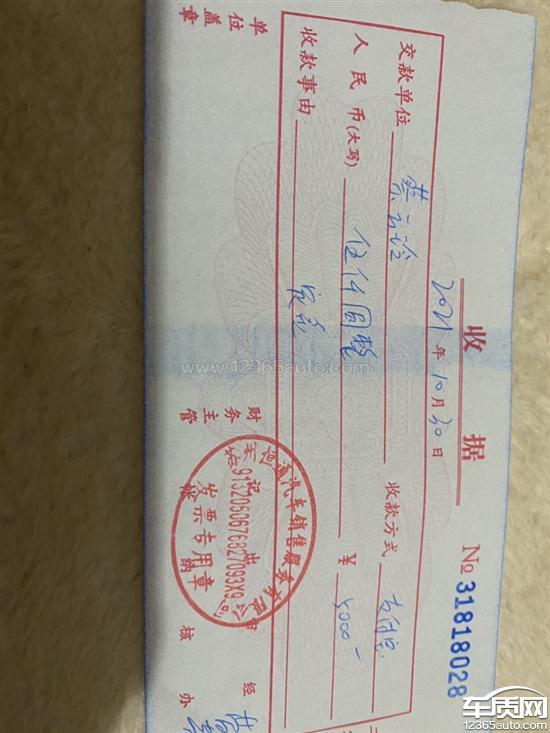 收据
2021年10月30日
№ 31818028
交款单位 蔡云论 收款方式 支付宝
人民币(大写) 伍仟圆整 ￥ 5000-
收款事由 定金
汽车销售服务有限公司
91320506076827093X9
发票专用章
单位盖章 财务主管 记账 出纳 审核 经办
www.12365auto.com
车质网
12365auto.com